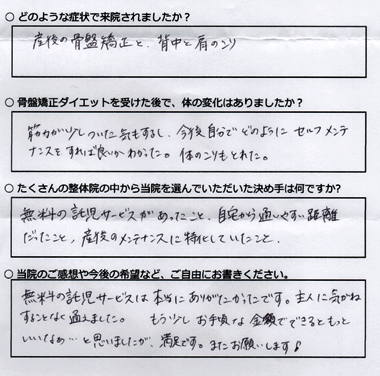 ○ どのような症状で来院されましたか？
産後の骨盤矯正と、背中と肩のこり
○ 骨盤矯正ダイエットを受けた後で、体の変化はありましたか？
筋力が少しついた気もするし、今後自分でどのように セルフメンテ
ナンスをすれば良いかわかった。体のこりもとれた。
○ たくさんの整体院の中から当院を選んでいただいた決め手は何ですか？
無料の託児サービスがあったこと、自宅から通いやすい距離
だったこと、産後のメンテナンスに特化していたこと、
○ 当院のご感想や今後の希望など、ご自由にお書きください。
無料の託児サービスは本当にありがたかったです。主人に気がね
することなく通えました。 もう少しお手頃な金額でできるともっと
いいなぁ…と思いましたが、満足です。またお願いします♪